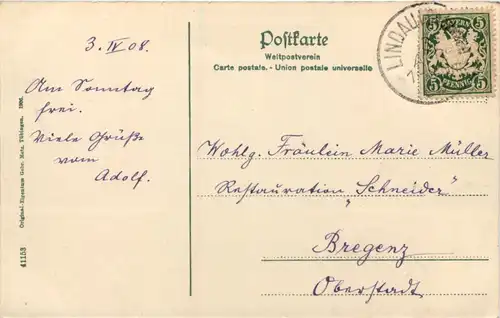 3. IV 08.
Am Sonntag
frei.
Viele Grüße
vom
Adolf.
Original-Eigentum Gebr. Metz, Tübingen. 1906.
41153
Postkarte
Weltpostverein
Carte postale. - Union postale universelle
LINDAU
BAYERN
5 5
5 PFENNIG 5
Wohlg. Fräulein Marie Müller
Restauration „Schneider"
Bregenz
Oberstadt